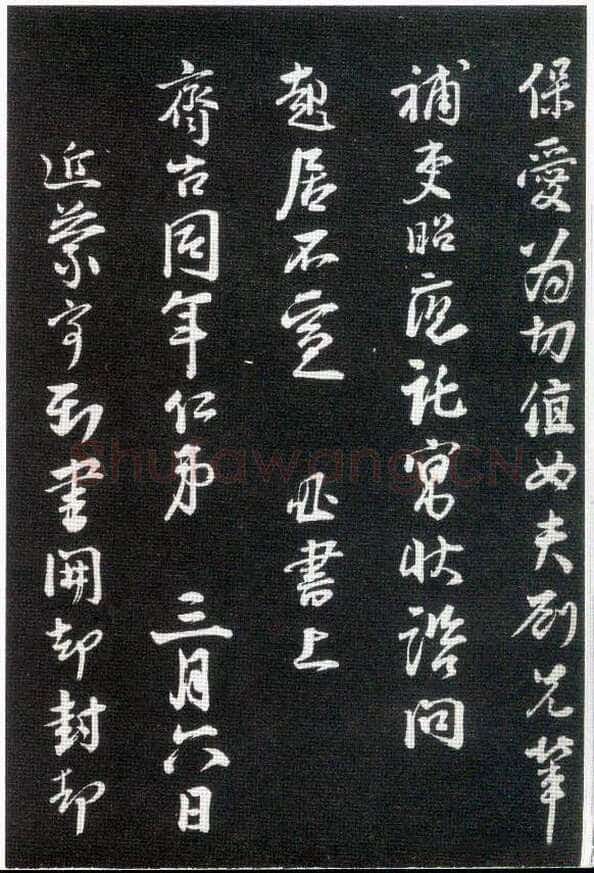 保愛为切值女夫劉兄華
補吏昭應託寓状諮問
起居不宣 書上
齊古同年仁弟 三月六日
近蒙寄到書開却封却
Shufawang.CN